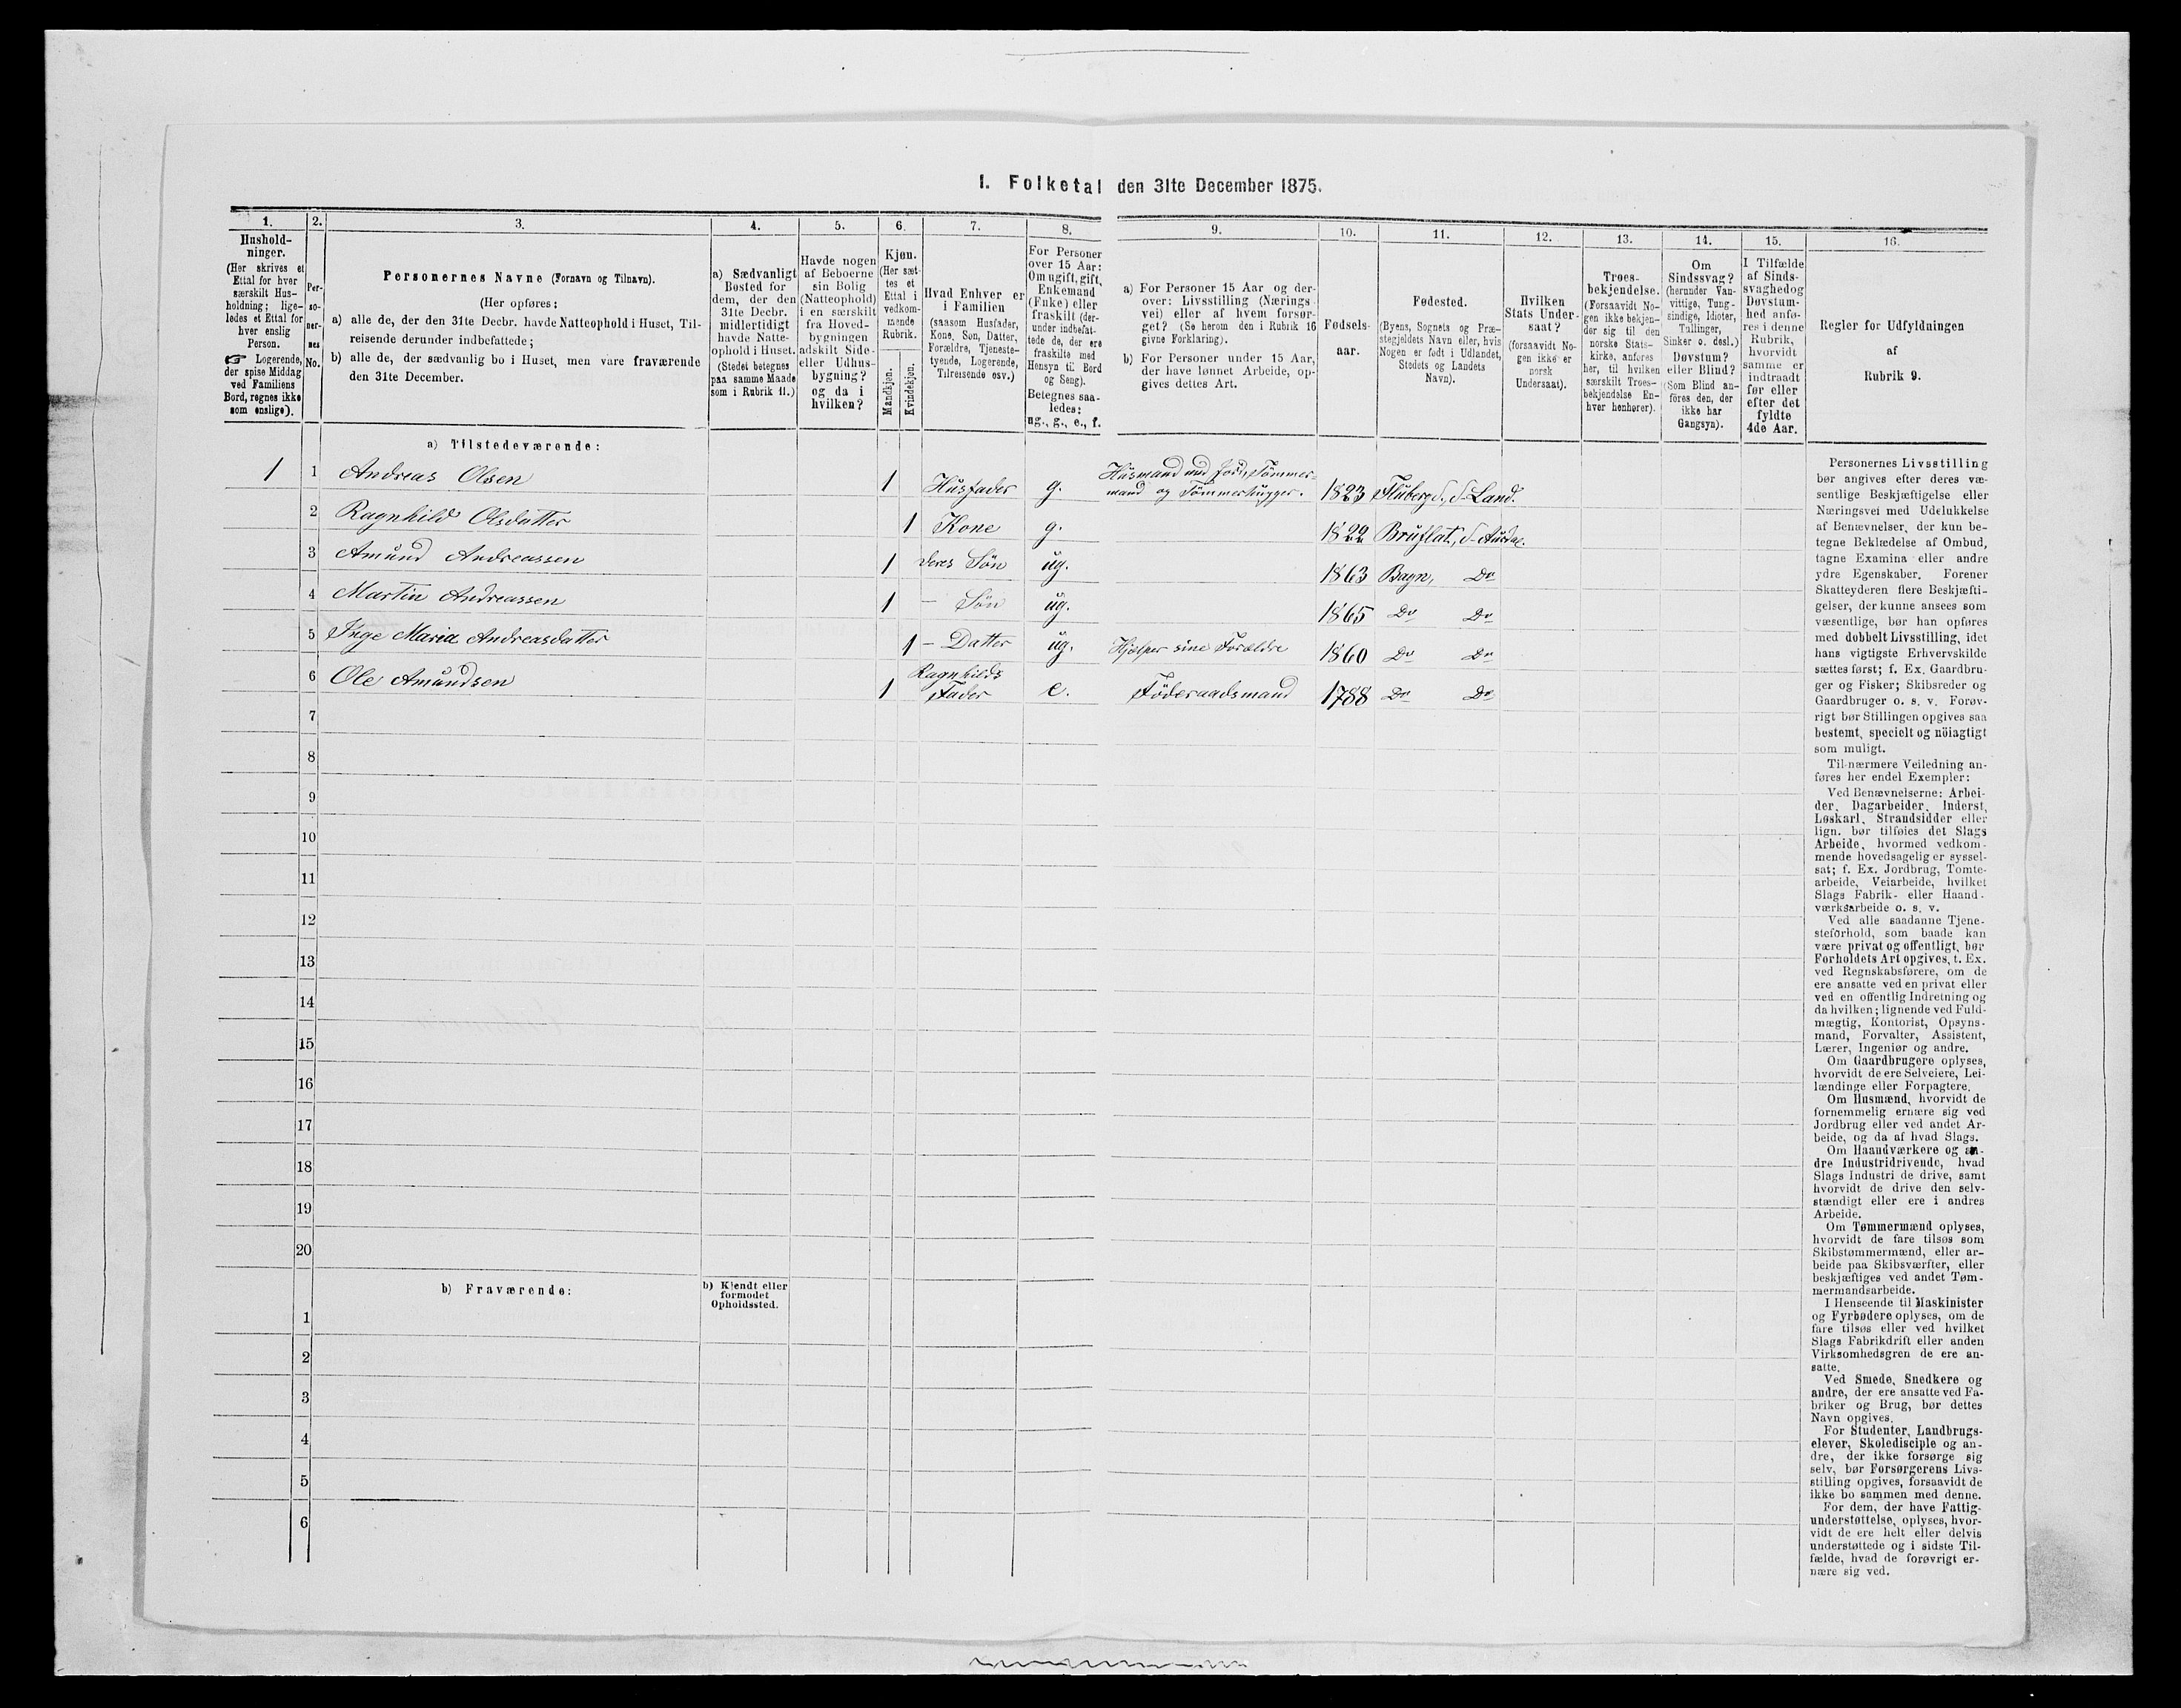 I. Folketal den 31te December 1875.
1.
Hushold-
ninger.
(Her skrives et
Ettal for hver
særskilt Hus-
holdning; lige-
ledes et Ettal for
hver enslig
Person.
☞ Logerende,
der spise Middag
ved Familiens
Bord, regnes ikke
som enslige).
2.
Per-
so-
ner-
nes
No.
3.
Personernes Navne (Fornavn og Tilnavn).
(Her opføres:
a) alle de, der den 31te Decbr. havde Natteophold i Huset, Til-
reisende derunder indbefattede;
b) alle de, der sædvanlig bo i Huset, men vare fraværende
den 31te December.
4.
a) Sædvanligt
Bosted for
dem, der den
31te Decbr.
midlertidigt
havde Natte-
ophold i Huset.
(Stedet betegnes
paa samme Maade
som i Rubrik 11.)
5.
Havde nogen
af Beboerne
sin Bolig
(Natteophold)
i en særskilt
fra Hoved-
bygningen
adskilt Side-
eller Udhus-
bygning?
og da i
hvilken?
6.
Kjøn.
(Her sæt-
tes et
Ettal i
vedkom-
mende
Rubrik.
Mandkjøn.
Kvindekjøn.
7.
Hvad Enhver er
i Familien
(saasom Husfader,
Kone, Søn, Datter,
Forældre, Tjeneste-
tyende, Logerende,
Tilreisende osv.)
8.
For Personer
over 15 Aar:
Om ugift, gift,
Enkemand
(Enke) eller
fraskilt (der-
under indbefat-
tede de, der ere
fraskilte med
Hensyn til Bord
og Seng).
Betegnes saa-
ledes:
ug., g., e., f.
9.
a) For Personer 15 Aar og der-
over: Livsstilling (Nærings-
vei) eller af hvem forsør-
get? (Se herom den i Rubrik 16
givne Forklaring).
b) For Personer under 15 Aar,
der have lønnet Arbeide, op-
gives dettes Art.
10.
Fødsels-
aar.
11.
Fødested.
(Byens, Sognets og Præ-
stegjeldets Navn eller, hvis
Nogen er født i Udlandet,
Stedets og Landets
Navn).
12.
Hvilken
Stats Under-
saat?
(forsaavidt No-
gen ikke er
norsk
Undersaat).
13.
Troes-
bekjendelse.
(Forsaavidt No-
gen ikke bekjen-
der sig til den
norske Stats-
kirke, anføres
her, til hvilken
særskilt Troes-
bekjendelse En-
hver henhører).
14.
Om
Sindssvag?
(herunder Van-
vittige, Tung-
sindige, Idioter,
Tullinger,
Sinker o. desl.)
Døvstum?
eller Blind?
(Som Blind an-
føres den, der
ikke har
Gangsyn).
15.
I Tilfælde
af Sinds-
svaghed og
Døvstum-
hed anfø-
res i denne
Rubrik,
hvorvidt
samme er
indtraadt
før eller
efter det
fyldte
4de Aar.
16.
Regler for Udfyldningen
af
Rubrik 9.
a) Tilstedeværende:
1 1 Andreas Olsen 1 Husfader g. Husmand med Jord, Tømmer-
mand og Tømmerhugger. 1823 Fluberg S., S-Land.
2 Ragnhild Olsdatter 1 Kone g. 1822 Bruflat, S-Aurdal.
3 Amund Andreassen 1 deres Søn ug. 1863 Bagn, Do
4 Martin Andreassen 1 – Søn ug. 1865 Do Do
5 Inge Maria Andreasdatter 1 – Datter ug. Hjelper sine Forældre 1860 Do Do
6 Ole Amundsen 1 Ragnhilds
Fader e. Føderaadsmand 1788 Do Do
7
8
9
10
11
12
13
14
15
16
17
18
19
20
b) Fraværende:
b) Kjendt eller
formodet
Opholdssted.
1
2
3
4
5
6
Personernes Livsstilling
bør angives efter deres væ-
sentlige Beskjæftigelse eller
Næringsvei med Udelukkelse
af Benævnelser, der kun be-
tegne Beklædelse af Ombud,
tagne Examina eller andre
ydre Egenskaber. Forener
Skatteyderen flere Beskjæfti-
gelser, der kunne ansees som
væsentlige, bør han opføres
med dobbelt Livsstilling, idet
hans vigtigste Erhvervskilde
sættes først; f. Ex. Gaardbru-
ger og Fisker; Skibsreder og
Gaardbruger o. s. v. Forøv-
rigt bør Stillingen opgives saa
bestemt, specielt og nöiagtigt
som muligt.
Til nærmere Veiledning an-
føres her endel Exempler:
Ved Benævnelserne: Arbei-
der, Dagarbeider, Inderst,
Løskarl, Strandsidder eller
lign. bør tilføies det Slags
Arbeide, hvormed vedkom-
mende hovedsagelig er syssel-
sat; f. Ex. Jordbrug, Tomte-
arbeide, Veiarbeide, hvilket
Slags Fabrik- eller Haand-
værksarbeide o. s. v.
Ved alle saadanne Tjene-
steforhold, som baade kan
være privat og offentligt, bør
Forholdets Art opgives, t. Ex.
ved Regnskabsførere, om de
ere ansatte ved en privat eller
ved en offentlig Indretning og
da hvilken; lignende ved Fuld-
mægtig, Kontorist, Opsyns-
mand, Forvalter, Assistent,
Lærer, Ingeniør og andre.
Om Gaardbrugere oplyses,
hvorvidt de ere Selveiere, Lei-
lændinge eller Forpagtere.
Om Husmænd, hvorvidt de
fornemmelig ernære sig ved
Jordbrug eller ved andet Ar-
beide, og da af hvad Slags.
Om Haandværkere og an-
dre Industridrivende, hvad
Slags Industri de drive, samt
hvorvidt de drive den selv-
stændigt eller ere i andres
Arbeide.
Om Tømmermænd oplyses,
hvorvidt de fare tilsøs som
Skibstømmermænd, eller ar-
beide paa Skibsværfter, eller
beskjæftiges ved andet Tøm-
mermandsarbeide.
I Henseende til Maskinister
og Fyrbødere oplyses, om de
fare tilsøs eller ved hvilket
Slags Fabrikdrift eller anden
Virksomhedsgren de ere an-
satte.
Ved Smede, Snedkere og
andre, der ere ansatte ved Fa-
briker og Brug, bør dettes
Navn opgives.
For Studenter, Landbrugs-
elever, Skoledisciple og an-
dre, der ikke forsørge sig
selv, bør Forsørgerens Livs-
stilling opgives, forsaavidt de
ikke bo sammen med denne.
For dem, der have Fattig-
understøttelse, oplyses, hvor-
vidt de ere helt eller delvis
understøttede og i sidste Til-
fælde, hvad de forøvrigt er-
nære sig ved.